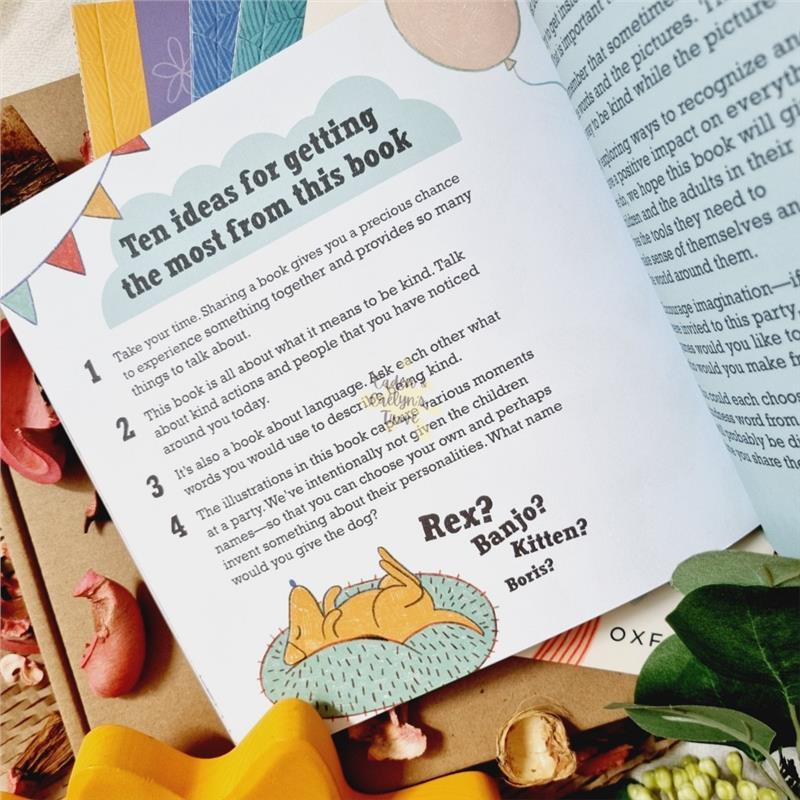 Ten ideas for getting
the most from this book
1 Take your time. Sharing a book gives you a precious chance
to experience something together and provides so many
things to talk about.
2 This book is all about what it means to be kind. Talk
about kind actions and people that you have noticed
around you today.
3 It's also a book about language. Ask each other what
words you would use to describe being kind.
4 The illustrations in this book capture various moments
at a party. We've intentionally not given the children
names—so that you can choose your own and perhaps
invent something about their personalities. What name
would you give the dog?
Rex?
Banjo?
Kitten?
Boris?
Caden &
Evelyn's
Twore
to get inside
is important
remember that sometimes
words and the pictures.
way to be kind while the picture
exploring ways to recognize and
a positive impact on everyth
do, we hope this book will gi
children and the adults in their
the tools they need to
sense of themselves and
world around them.
courage imagination—if
invited to this party,
would you like to
would you make fr
could each choose
dness word from
probably be di
you share the
OXF